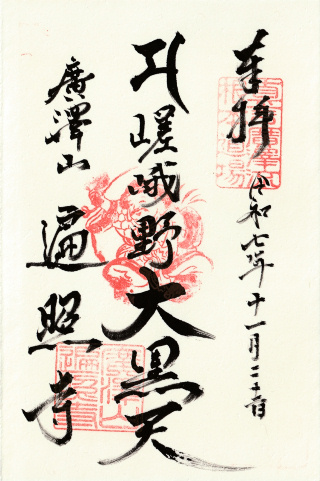 奉拝
令和七年十一月二十日
嵯峨野大黒天
廣澤山
遍照寺